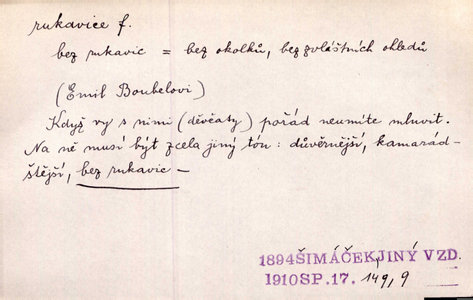 rukavice f.
bez rukavic = bez okolků, bez zvláštních ohledů
(Emil Boubelovi)
Když vy s nimi (děvčaty) pořád neumíte mluvit.
Na ně musí být zcela jiný tón: důvěrnější, kamarád-
štější, bez rukavic –
1894 ŠIMÁČEK, JINÝ VZD.
1910 SP. 17. 149, 9